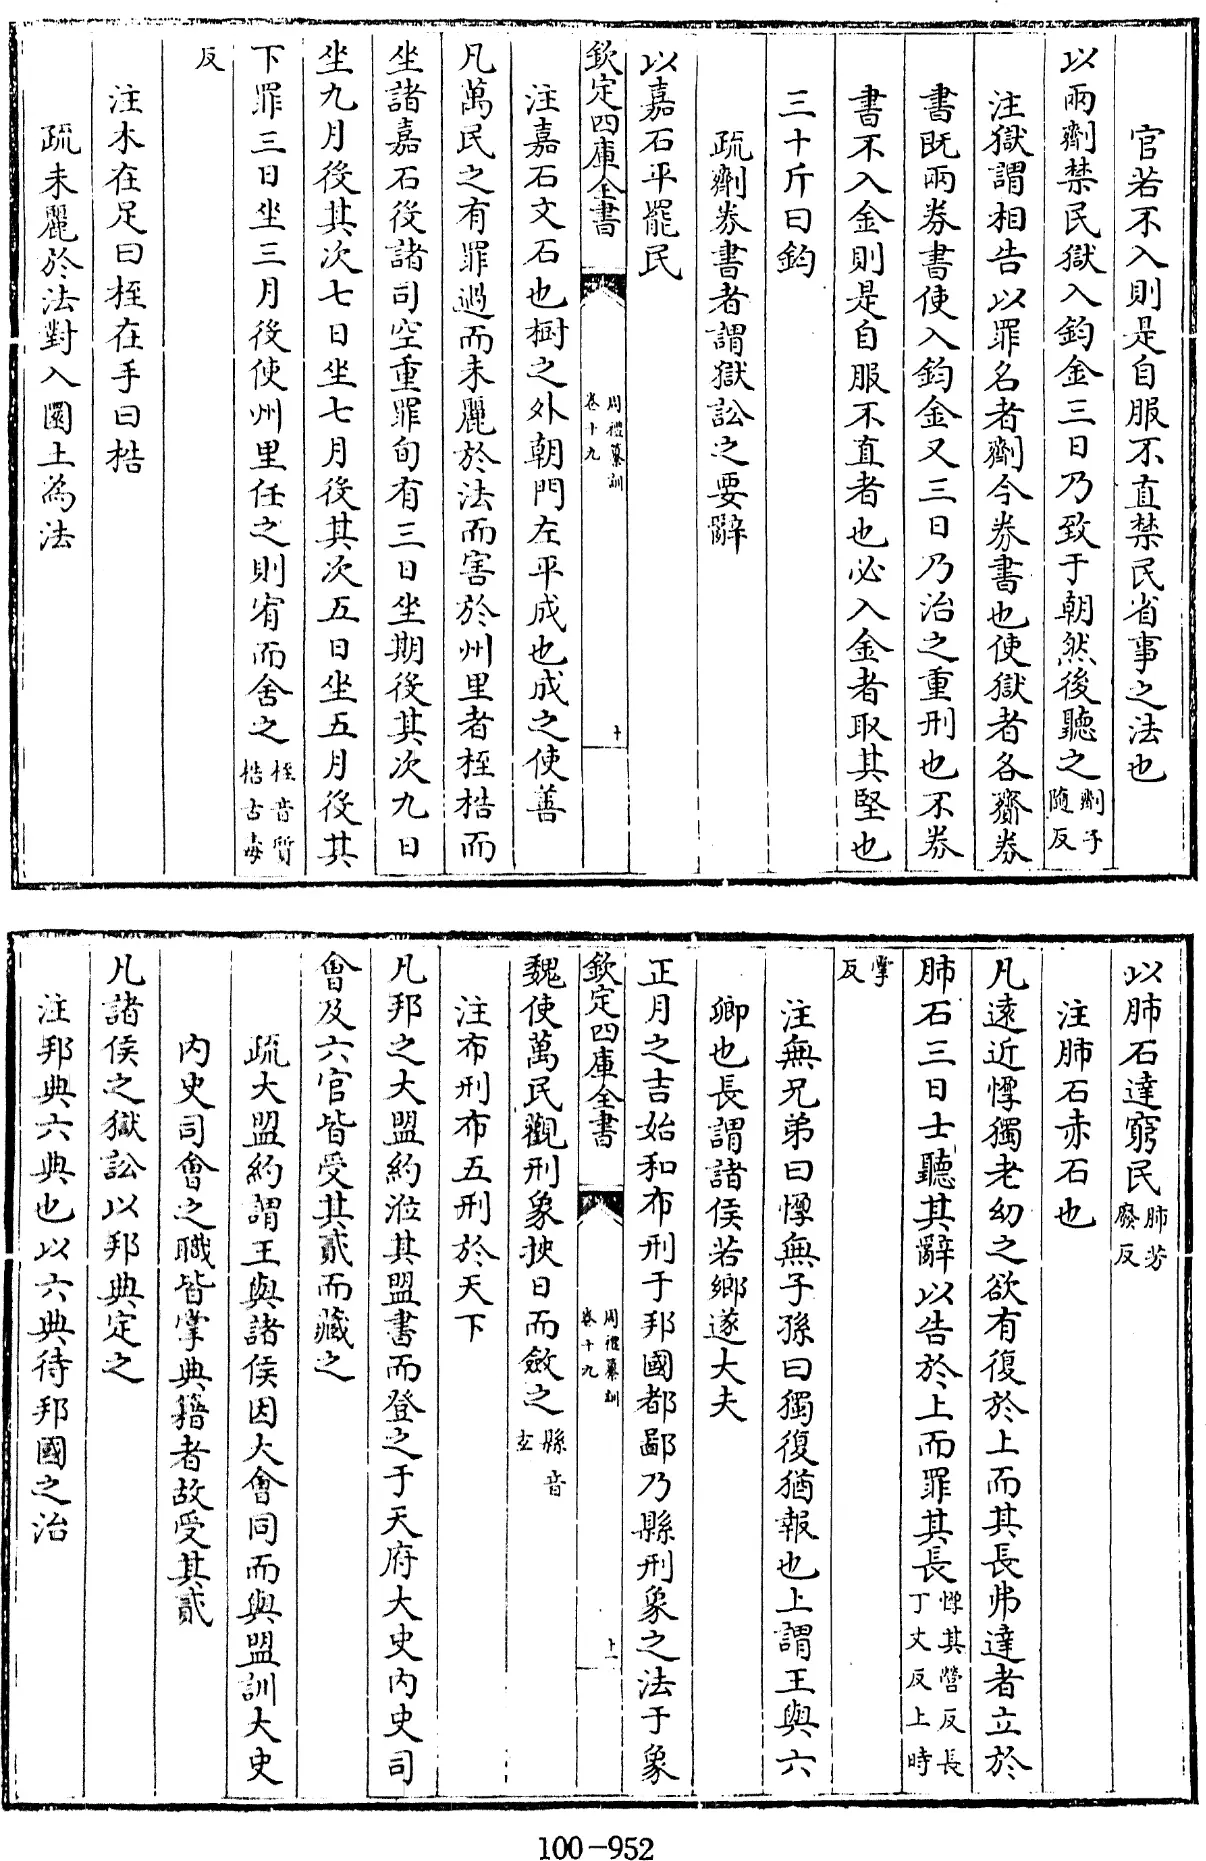 官若不入則是自服不直禁民省事之法也
以兩劑禁民獄入鈞金三日乃致于朝然後聽之劑子隨反
注獄謂相告以罪名者劑今券書也使獄者各齎券
書既兩券書使入鈞金又三日乃治之重刑也不券
書不入金則是自服不直者也必入金者取其堅也
三十斤曰鈞
疏劑券書者謂獄訟之要辭
以嘉石平罷民
欽定四庫全書
周禮纂訓
卷十九
十
注嘉石文石也樹之外朝門左平成也成之使善
凡萬民之有罪過而未麗於法而害於州里者桎梏而
坐諸嘉石役諸司空重罪旬有三日坐期役其次九日
坐九月役其次七日坐七月役其次五日坐五月役其
下罪三日坐三月役使州里任之則宥而舍之桎音質梏古毒
反
注木在足曰桎在手曰梏
疏未麗於法對入圜土為法
以肺石達窮民肺芳廢反
注肺石赤石也
凡遠近惸獨老幼之欲有復於上而其長弗達者立於
肺石三日士聽其辭以告於上而罪其長惸其營反長丁丈反上時
掌反
注無兄弟曰惸無子孫曰獨復猶報也上謂王與六
卿也長謂諸侯若鄉遂大夫
正月之吉始和布刑于邦國都鄙乃縣刑象之法于象
欽定四庫全書
周禮纂訓
卷十九
十一
魏使萬民觀刑象挾日而斂之縣音玄
注布刑布五刑於天下
凡邦之大盟約涖其盟書而登之于天府大史內史司
會及六官皆受其貳而藏之
疏大盟約謂王與諸侯因大會同而與盟訓大史
內史司會之職皆掌典籍者故受其貳
凡諸侯之獄訟以邦典定之
注邦典六典也以六典待邦國之治
100-952